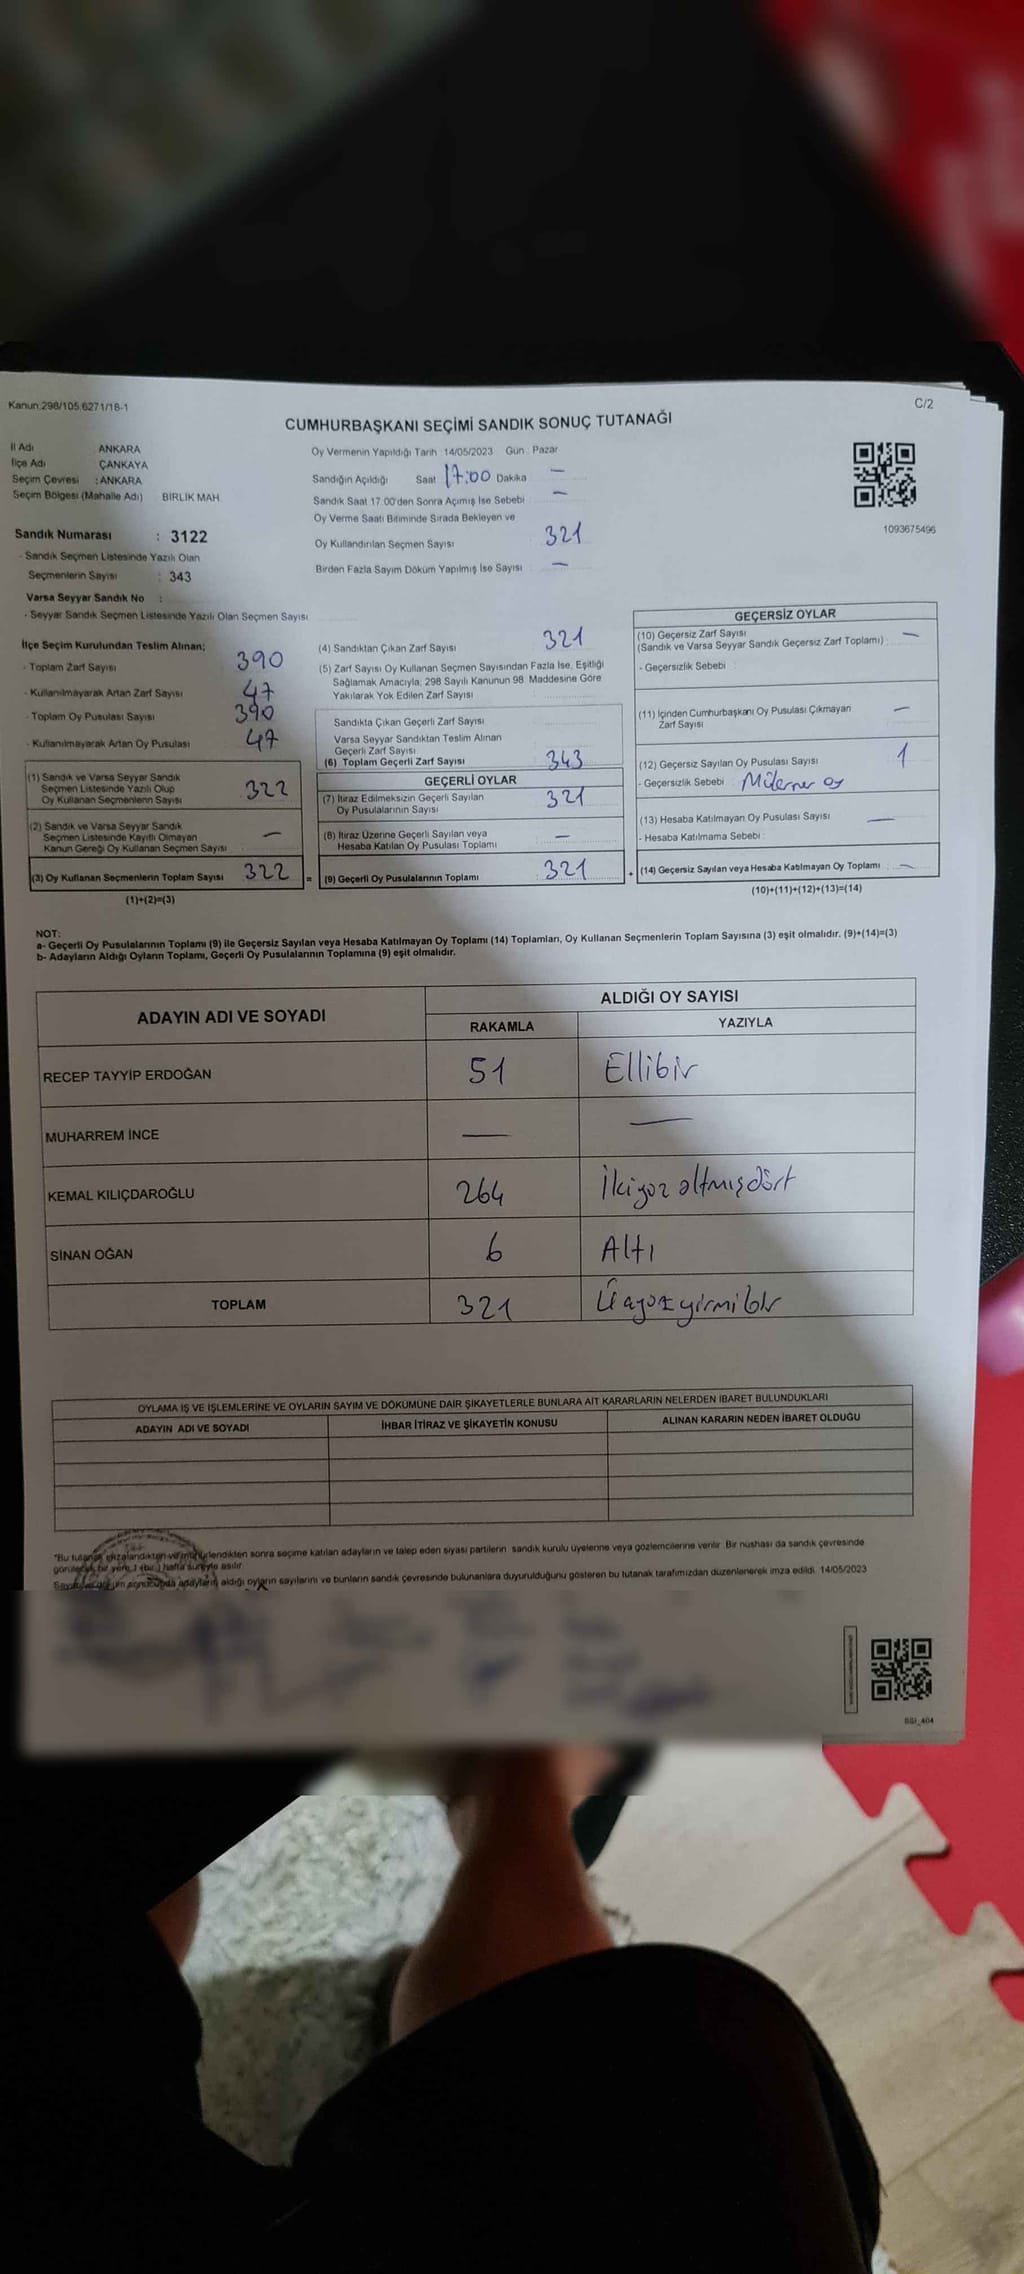 Kanun:298/105:6271/18-1
C/2
CUMHURBAŞKANI SEÇİMİ SANDIK SONUÇ TUTANAĞI
İl Adı ANKARA
İlçe Adı ÇANKAYA
Seçim Çevresi : ANKARA
Seçim Bölgesi (Mahalle Adı) BİRLİK MAH.
Sandık Numarası : 3122
- Sandık Seçmen Listesinde Yazılı Olan
Seçmenlerin Sayısı : 343
Varsa Seyyar Sandık No :
- Seyyar Sandık Seçmen Listesinde Yazılı Olan Seçmen Sayısı
Oy Vermenin Yapıldığı Tarih 14/05/2023 Gün : Pazar
Sandığın Açıldığı Saat 17:00 Dakika —
Sandık Saat 17.00'den Sonra Açılmış İse Sebebi —
Oy Verme Saati Bitiminde Sırada Bekleyen ve
Oy Kullandırılan Seçmen Sayısı 321
Birden Fazla Sayım Döküm Yapılmış İse Sayısı —
1093675496
İlçe Seçim Kurulundan Teslim Alınan;
- Toplam Zarf Sayısı 390
- Kullanılmayarak Artan Zarf Sayısı 47
- Toplam Oy Pusulası Sayısı 390
- Kullanılmayarak Artan Oy Pusulası 47
(1) Sandık ve Varsa Seyyar Sandık
Seçmen Listesinde Yazılı Olup
Oy Kullanan Seçmenlerin Sayısı 322
(2) Sandık ve Varsa Seyyar Sandık
Seçmen Listesinde Kayıtlı Olmayan
Kanun Gereği Oy Kullanan Seçmen Sayısı —
(3) Oy Kullanan Seçmenlerin Toplam Sayısı 322 =
(1)+(2)=(3)
(4) Sandıktan Çıkan Zarf Sayısı 321
(5) Zarf Sayısı Oy Kullanan Seçmen Sayısından Fazla İse, Eşitliği
Sağlamak Amacıyla, 298 Sayılı Kanunun 98. Maddesine Göre
Yakılarak Yok Edilen Zarf Sayısı
Sandıkta Çıkan Geçerli Zarf Sayısı
Varsa Seyyar Sandıktan Teslim Alınan
Geçerli Zarf Sayısı
(6) Toplam Geçerli Zarf Sayısı 343
GEÇERLİ OYLAR
(7) İtiraz Edilmeksizin Geçerli Sayılan
Oy Pusulalarının Sayısı 321
(8) İtiraz Üzerine Geçerli Sayılan veya
Hesaba Katılan Oy Pusulası Toplamı —
(9) Geçerli Oy Pusulalarının Toplamı 321 +
GEÇERSİZ OYLAR
(10) Geçersiz Zarf Sayısı
(Sandık ve Varsa Seyyar Sandık Geçersiz Zarf Toplamı) —
- Geçersizlik Sebebi
(11) İçinden Cumhurbaşkanı Oy Pusulası Çıkmayan
Zarf Sayısı —
(12) Geçersiz Sayılan Oy Pusulası Sayısı 1
- Geçersizlik Sebebi oy
(13) Hesaba Katılmayan Oy Pusulası Sayısı —
- Hesaba Katılmama Sebebi :
(14) Geçersiz Sayılan veya Hesaba Katılmayan Oy Toplamı : —
(10)+(11)+(12)+(13)=(14)
NOT:
a- Geçerli Oy Pusulalarının Toplamı (9) ile Geçersiz Sayılan veya Hesaba Katılmayan Oy Toplamı (14) Toplamları, Oy Kullanan Seçmenlerin Toplam Sayısına (3) eşit olmalıdır. (9)+(14)=(3)
b- Adayların Aldığı Oyların Toplamı, Geçerli Oy Pusulalarının Toplamına (9) eşit olmalıdır.
ADAYIN ADI VE SOYADI
ALDIĞI OY SAYISI
RAKAMLA YAZIYLA
RECEP TAYYİP ERDOĞAN 51 Ellibir
MUHARREM İNCE — —
KEMAL KILIÇDAROĞLU 264 İkiyüz altmışdört
SİNAN OĞAN 6 Altı
TOPLAM 321 Üçyüz yirmibir
OYLAMA İŞ VE İŞLEMLERİNE VE OYLARIN SAYIM VE DÖKÜMÜNE DAİR ŞİKAYETLERLE BUNLARA AİT KARARLARIN NELERDEN İBARET BULUNDUKLARI
ADAYIN ADI VE SOYADI İHBAR İTİRAZ VE ŞİKAYETİN KONUSU ALINAN KARARIN NEDEN İBARET OLDUĞU
*Bu tutanak imzalandıktan ve mühürlendikten sonra seçime katılan adayların ve talep eden siyasi partilerin sandık kurulu üyelerine veya gözlemcilerine verilir. Bir nüshası da sandık çevresinde
görülecek bir yere 1 (bir) hafta süreyle asılır.
adayların aldığı oyların sayılarını ve bunların sandık çevresinde bulunanlara duyurulduğunu gösteren bu tutanak tarafımızdan düzenlenerek imza edildi. 14/05/2023